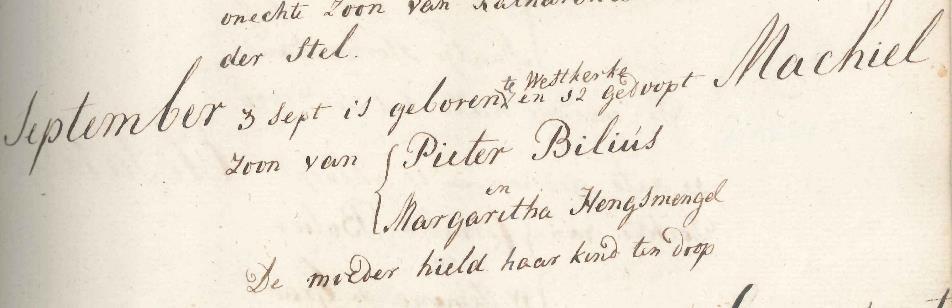 onechte Zoon van Katharina
der Stel.
te Westkerke
September 3 Sept is geboren en 12 gedoopt Machiel
Zoon van { Pieter Biliús
en
Margaritha Hengsmengel
De moeder hield haar kind ten doop